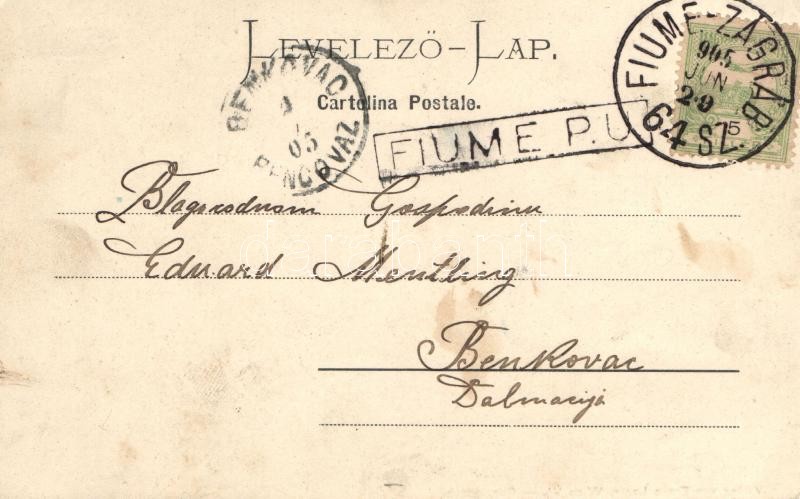 LEVELEZŐ-LAP.
Cartolina Postale.
BENKOVAC
05
BENCOVAZ
FIUME P.U.
FIUME-ZÁGRÁB
905
JUN
29
64 SZ.
5
Blagorodnom Gospodinu
Eduard Mentling
Benkovac
Dalmacija
darabanth